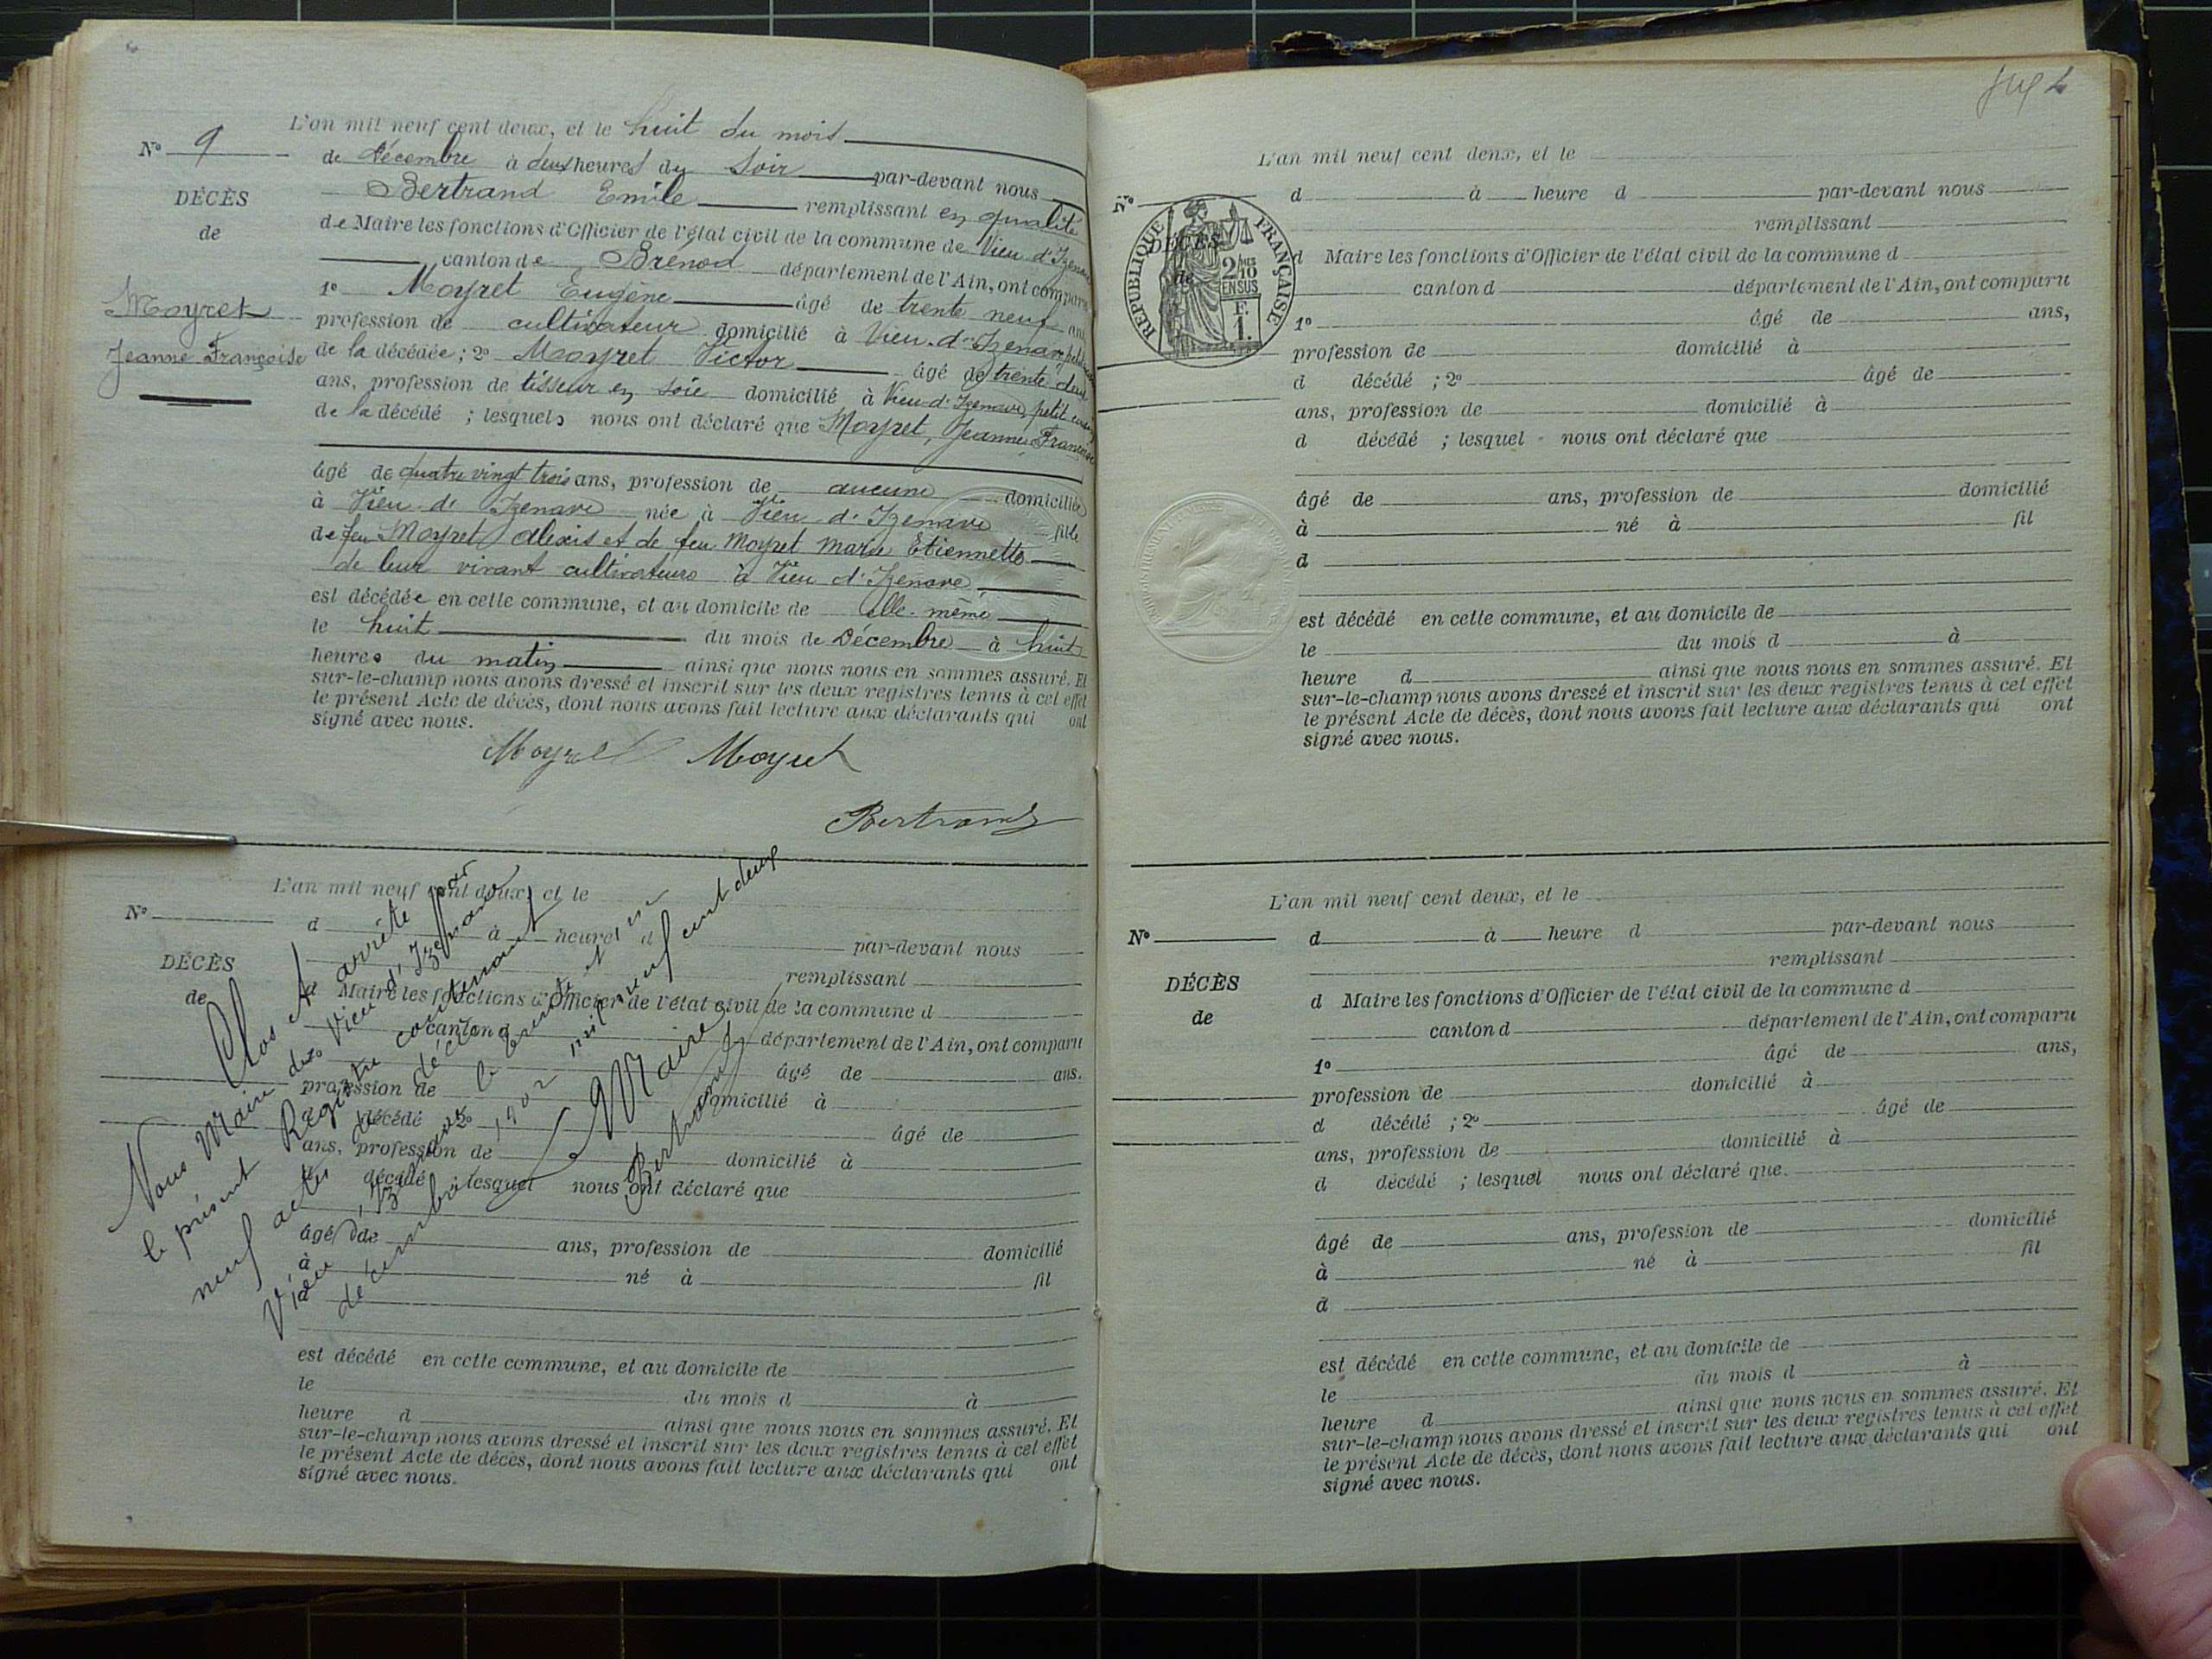 L'an mil neuf cent deux, et le huit du mois
N° 9
de décembre à deux heures du soir par-devant nous
DÉCÈS
Bertrand Emile remplissant en qualité
de
de Maire les fonctions d'Officier de l'état civil de la commune de Vieu-d'Izenave
canton de Brénod département de l'Ain, ont comparu
1° Moyret Eugène âgé de trente neuf ans
Moyret
profession de cultivateur domicilié à Vieu-d'Izenave
Jeanne Françoise
de la décédée ; 2° Moyret Victor âgé de trente deux
ans, profession de tisseur en soie domicilié à Vieu-d'Izenave, petit cousin
de la décédé ; lesquels nous ont déclaré que Moyret, Jeanne Françoise
âgé de quatre vingt trois ans, profession de aucune domiciliée
à Vieu-d'Izenave née à Vieu-d'Izenave fille
de feu Moyret Alexis et de feu Moyret Marie Etiennette
de leur vivant cultivateurs à Vieu d'Izenave
est décédée en cette commune, et au domicile de elle-même
le huit du mois de Décembre à huit
heures du matin ainsi que nous nous en sommes assuré. Et
sur-le-champ nous avons dressé et inscrit sur les deux registres tenus à cet effet
le présent Acte de décès, dont nous avons fait lecture aux déclarants qui ont
signé avec nous.
Moyret Moyret
Bertrand
L'an mil neuf cent deux, et le
N°
d à heure d par-devant nous
DÉCÈS
remplissant
de
d Maire les fonctions d'Officier de l'état civil de la commune d
canton d département de l'Ain, ont comparu
âgé de ans.
profession de domicilié à
d décédé ; 2° âgé de
ans, profession de domicilié à
d décédé ; lesquel nous ont déclaré que
âgé de ans, profession de domicilié
à né à fil
d
est décédé en cette commune, et au domicile de
le du mois d à
heure d ainsi que nous nous en sommes assuré. Et
sur-le-champ nous avons dressé et inscrit sur les deux registres tenus à cet effet
le présent Acte de décès, dont nous avons fait lecture aux déclarants qui ont
signé avec nous.
Clos et arrêté par
Nous Maire de Vieu d'Izenave
le présent Registre contenant
neuf actes de décès
Vieu d'Izenave le trente et un
décembre 1902 mil neuf cent deux
Maire
Bertrand
L'an mil neuf cent deux, et le
N°
d à heure d par-devant nous
DÉCÈS
remplissant
de
d Maire les fonctions d'Officier de l'état civil de la commune d
canton d département de l'Ain, ont comparu
1° âgé de ans,
profession de domicilié à
d décédé ; 2° âgé de
ans, profession de domicilié à
d décédé ; lesquel nous ont déclaré que
âgé de ans, profession de domicilié
à né à fil
d
est décédé en cette commune, et au domicile de
le du mois d à
heure d ainsi que nous nous en sommes assuré. Et
sur-le-champ nous avons dressé et inscrit sur les deux registres tenus à cet effet
le présent Acte de décès, dont nous avons fait lecture aux déclarants qui ont
signé avec nous.
RÉPUBLIQUE FRANÇAISE
2/10 EN SUS
F.
1.
L'an mil neuf cent deux, et le
N°
d à heure d par-devant nous
remplissant
DÉCÈS
d Maire les fonctions d'Officier de l'état civil de la commune d
de
canton d département de l'Ain, ont comparu
1° âgé de ans,
profession de domicilié à
d décédé ; 2° âgé de
ans, profession de domicilié à
d décédé ; lesquel nous ont déclaré que.
âgé de ans, profession de domicilié
à né à fil
d
est décédé en cette commune, et au domicile de
le du mois d à
heure d ainsi que nous nous en sommes assuré. Et
sur-le-champ nous avons dressé et inscrit sur les deux registres tenus à cet effet
le présent Acte de décès, dont nous avons fait lecture aux déclarants qui ont
signé avec nous.